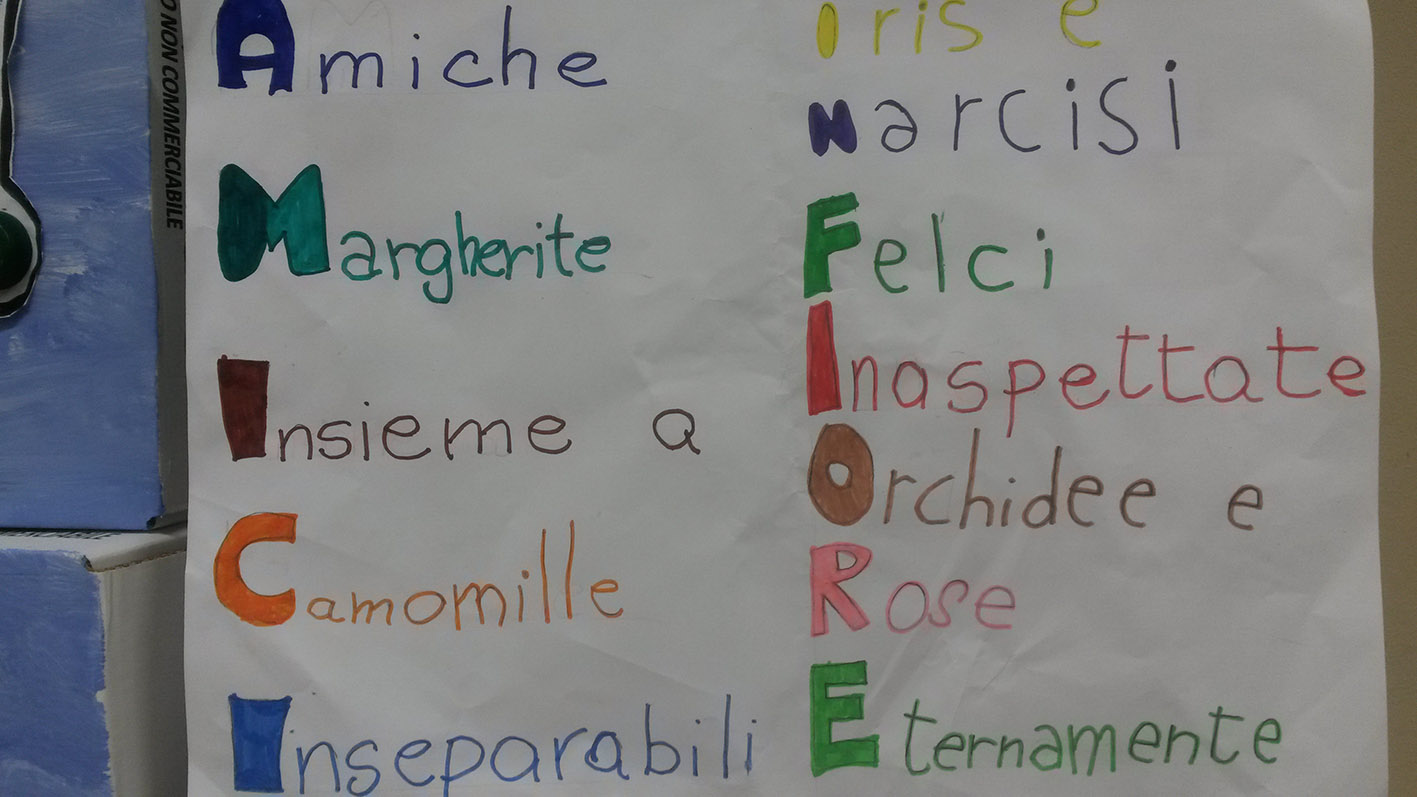 Amiche
Margherite
Insieme a
Camomille
Inseparabili
Iris e
Narcisi
Felci
Inaspettate
Orchidee e
Rose
Eternamente
O NON COMMERCIABILE